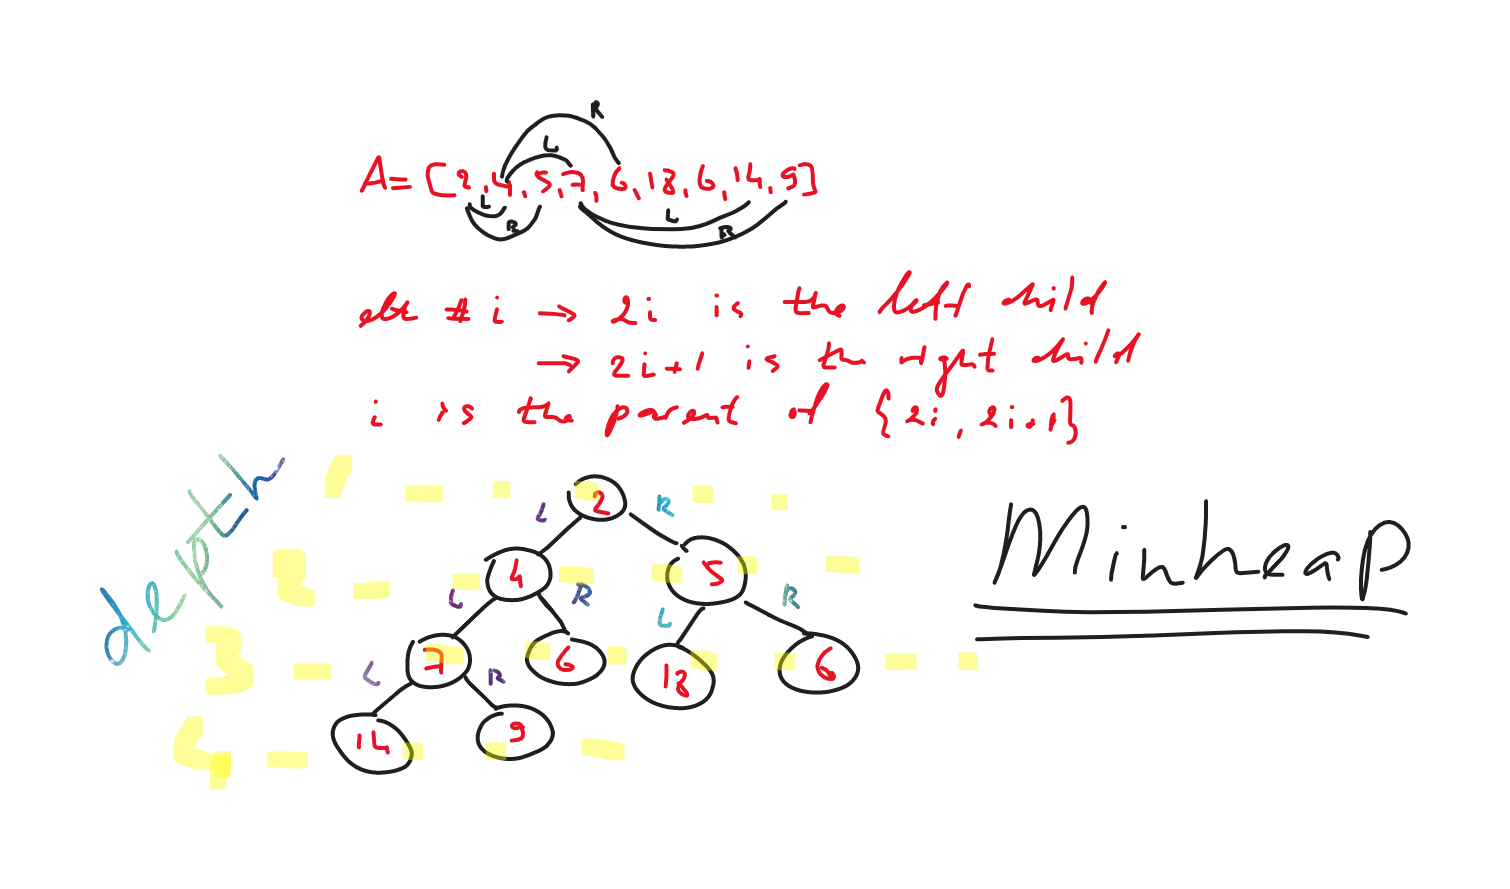 R
L
A= [2,4,5,7,6,18,6,14,9]
L L
R R
elt # i → 2i is the left child
→ 2i+1 is the right child
i is the parent of {2i, 2i+1}
depth
1 2
L R
2 4 5 Minheap
L R L R
3 7 6 18 6
L R
4 14 9